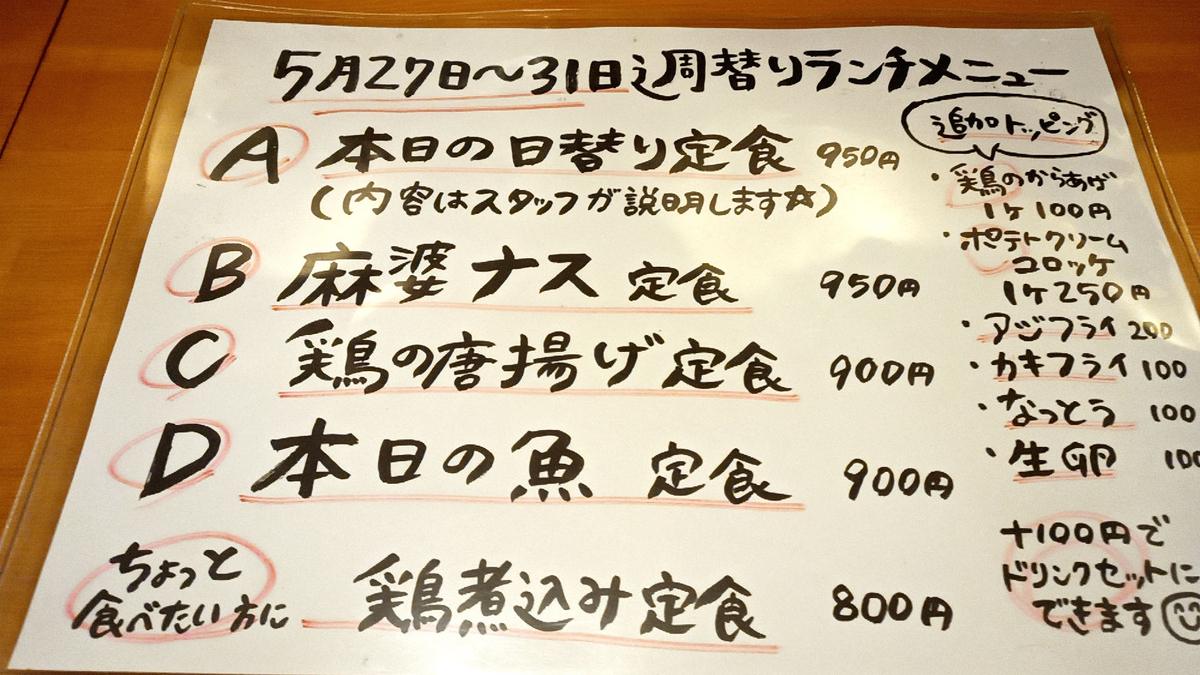 5月27日～31日週替りランチメニュー
A 本日の日替り定食 950円
(内容はスタッフが説明します☆)
B 麻婆ナス 定食 950円
C 鶏の唐揚げ定食 900円
D 本日の魚 定食 900円
ちょっと
食べたい方に
鶏煮込み定食 800円
追加トッピング
・鶏のからあげ
1ケ100円
・ポテトクリーム
コロッケ
1ケ250円
・アジフライ 200
・カキフライ 100
・なっとう 100
・生卵 100
+100円で
ドリンクセットに
できます